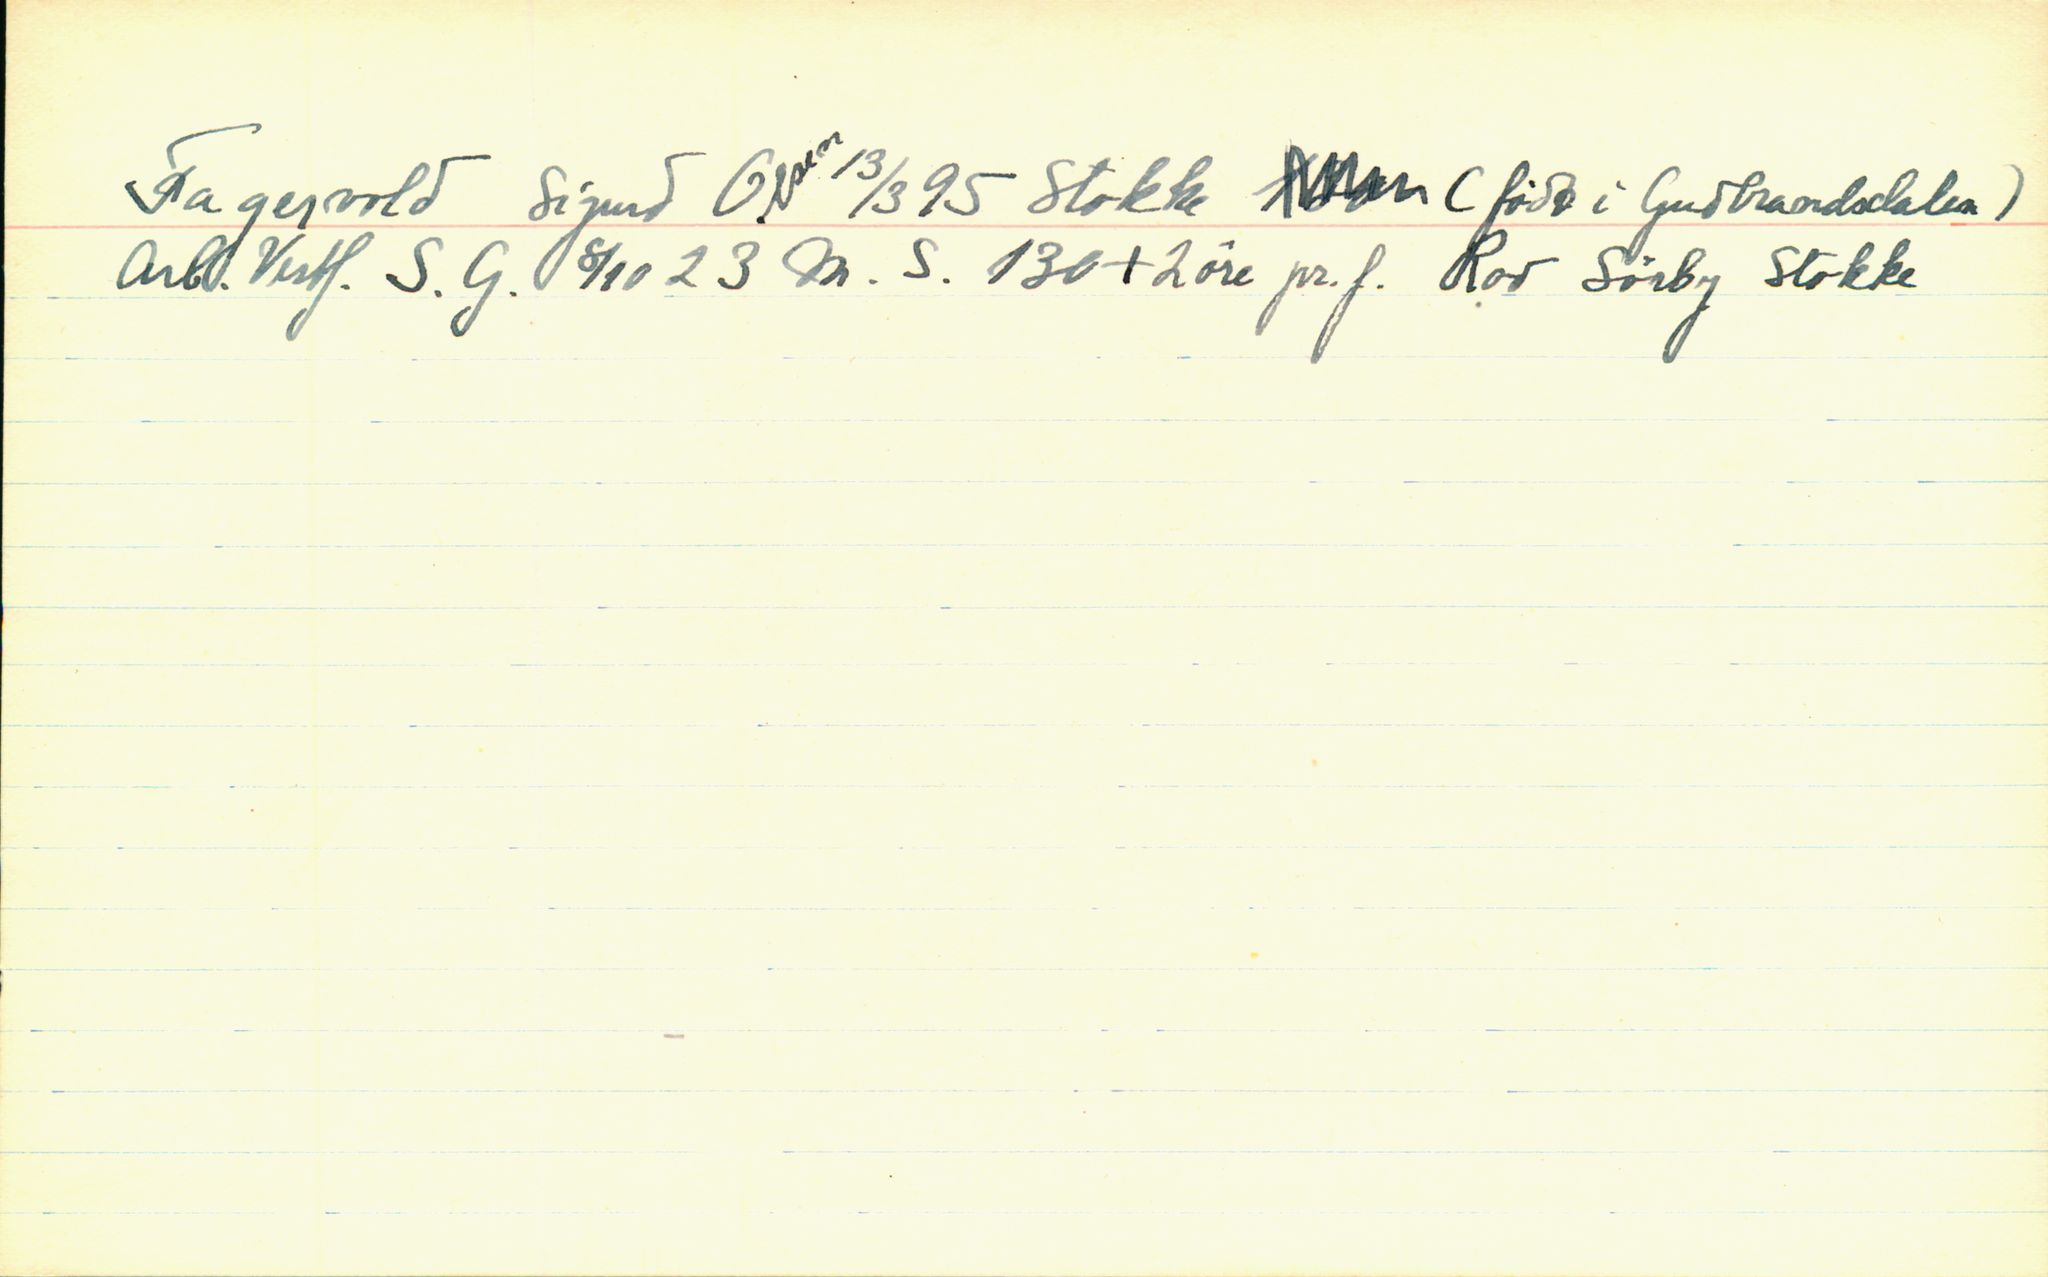 Fagervold Sigurd 13/3 95 Stokke (född i Gudbrandsdalen)
Arb. Vestf. S. G. 8/10 23 M. S. 130 + 2 öre pr. f. Rod Sörby Stokke